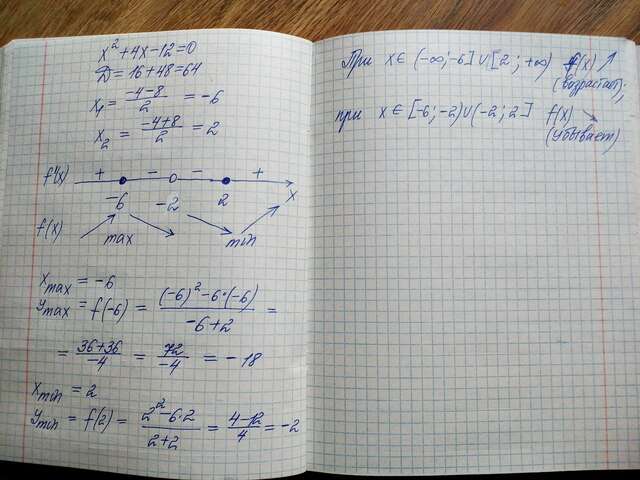 x² + 4x - 12 = 0
D = 16 + 48 = 64
x₁ = (-4-8)/2 = -6
x₂ = (-4+8)/2 = 2
f'(x) + - - +
-6 -2 2 x
f(x) max min
xmax = -6
ymax = f(-6) = ((-6)² - 6·(-6))/(-6+2) =
= (36+36)/(-4) = 72/(-4) = -18
xmin = 2
ymin = f(2) = (2² - 6·2)/(2+2) = (4-12)/4 = -2
При x ∈ (-∞; -6] ∪ [2; +∞) f(x) ↗
(возрастает);
при x ∈ [-6; -2) ∪ (-2; 2] f(x) ↘
(убывает)